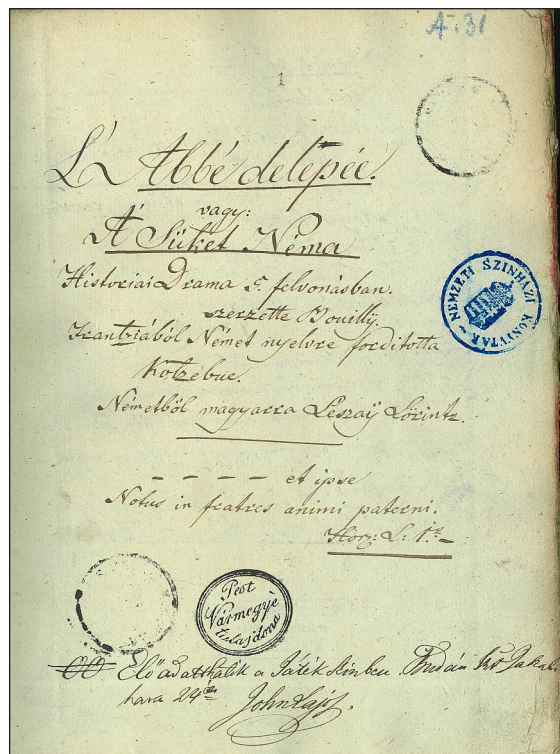 A:31
1
L' Abbé delepée.
vagy:
A' Süket Néma
Historiai Drama 5. felvonásban.
szerzette Bouilly.
Frantziából Német nyelvre fordította
Kotzebue.
Németből magyarra Leszaÿ Lőrintz.
– – – – et ipse
Notus in fratres animi paterni.
Horz: L: 1r
NEMZETI SZINHÁZI KÖNYVTÁR
Pest
Vármegyé
tulajdona
Előadatthatik a Játék szinben Budán
hava 24